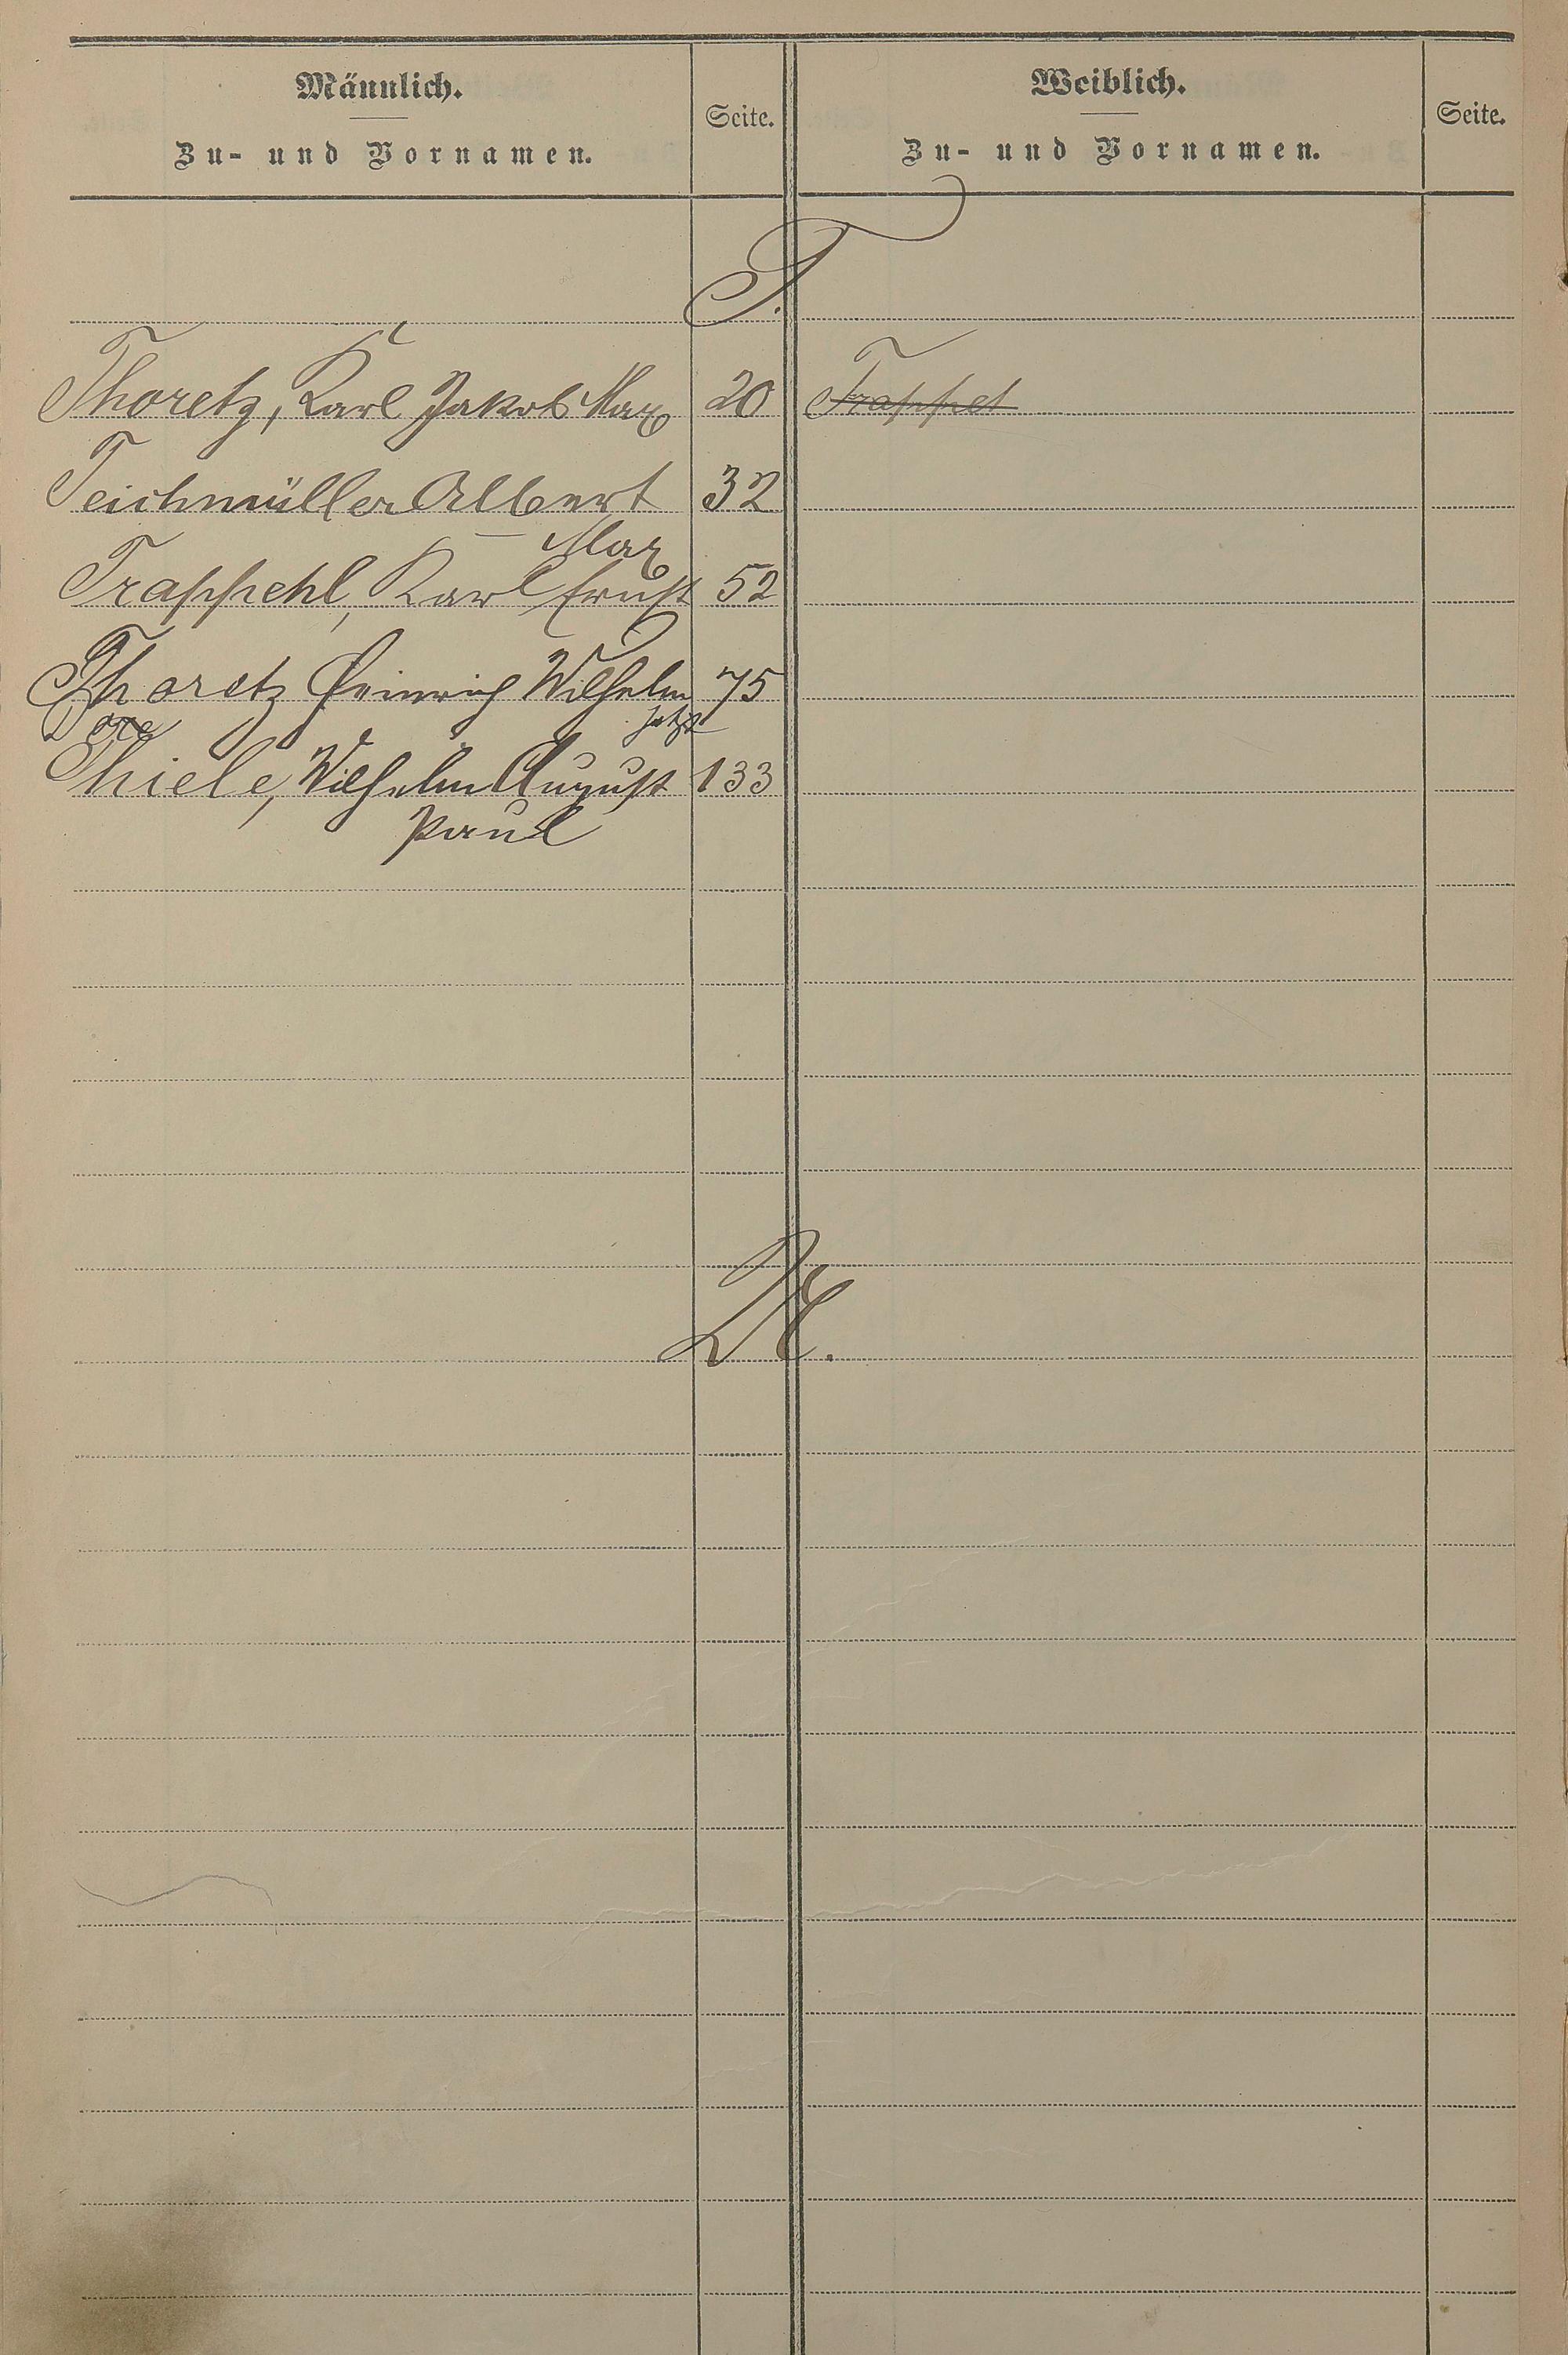 Männlich.
Zu- und Vornamen.
Seite.
Weiblich.
Zu- und Vornamen.
Seite.
T.
Thoretz, Karl Jakob Max 20
Trappet
Teichmüller Albert 32
Max
Trappehl, Karl Ernst 52
Thoretz Heinrich Wilhelm 75
jetzt
Thiele, Wilhelm August 133
Paul
U.